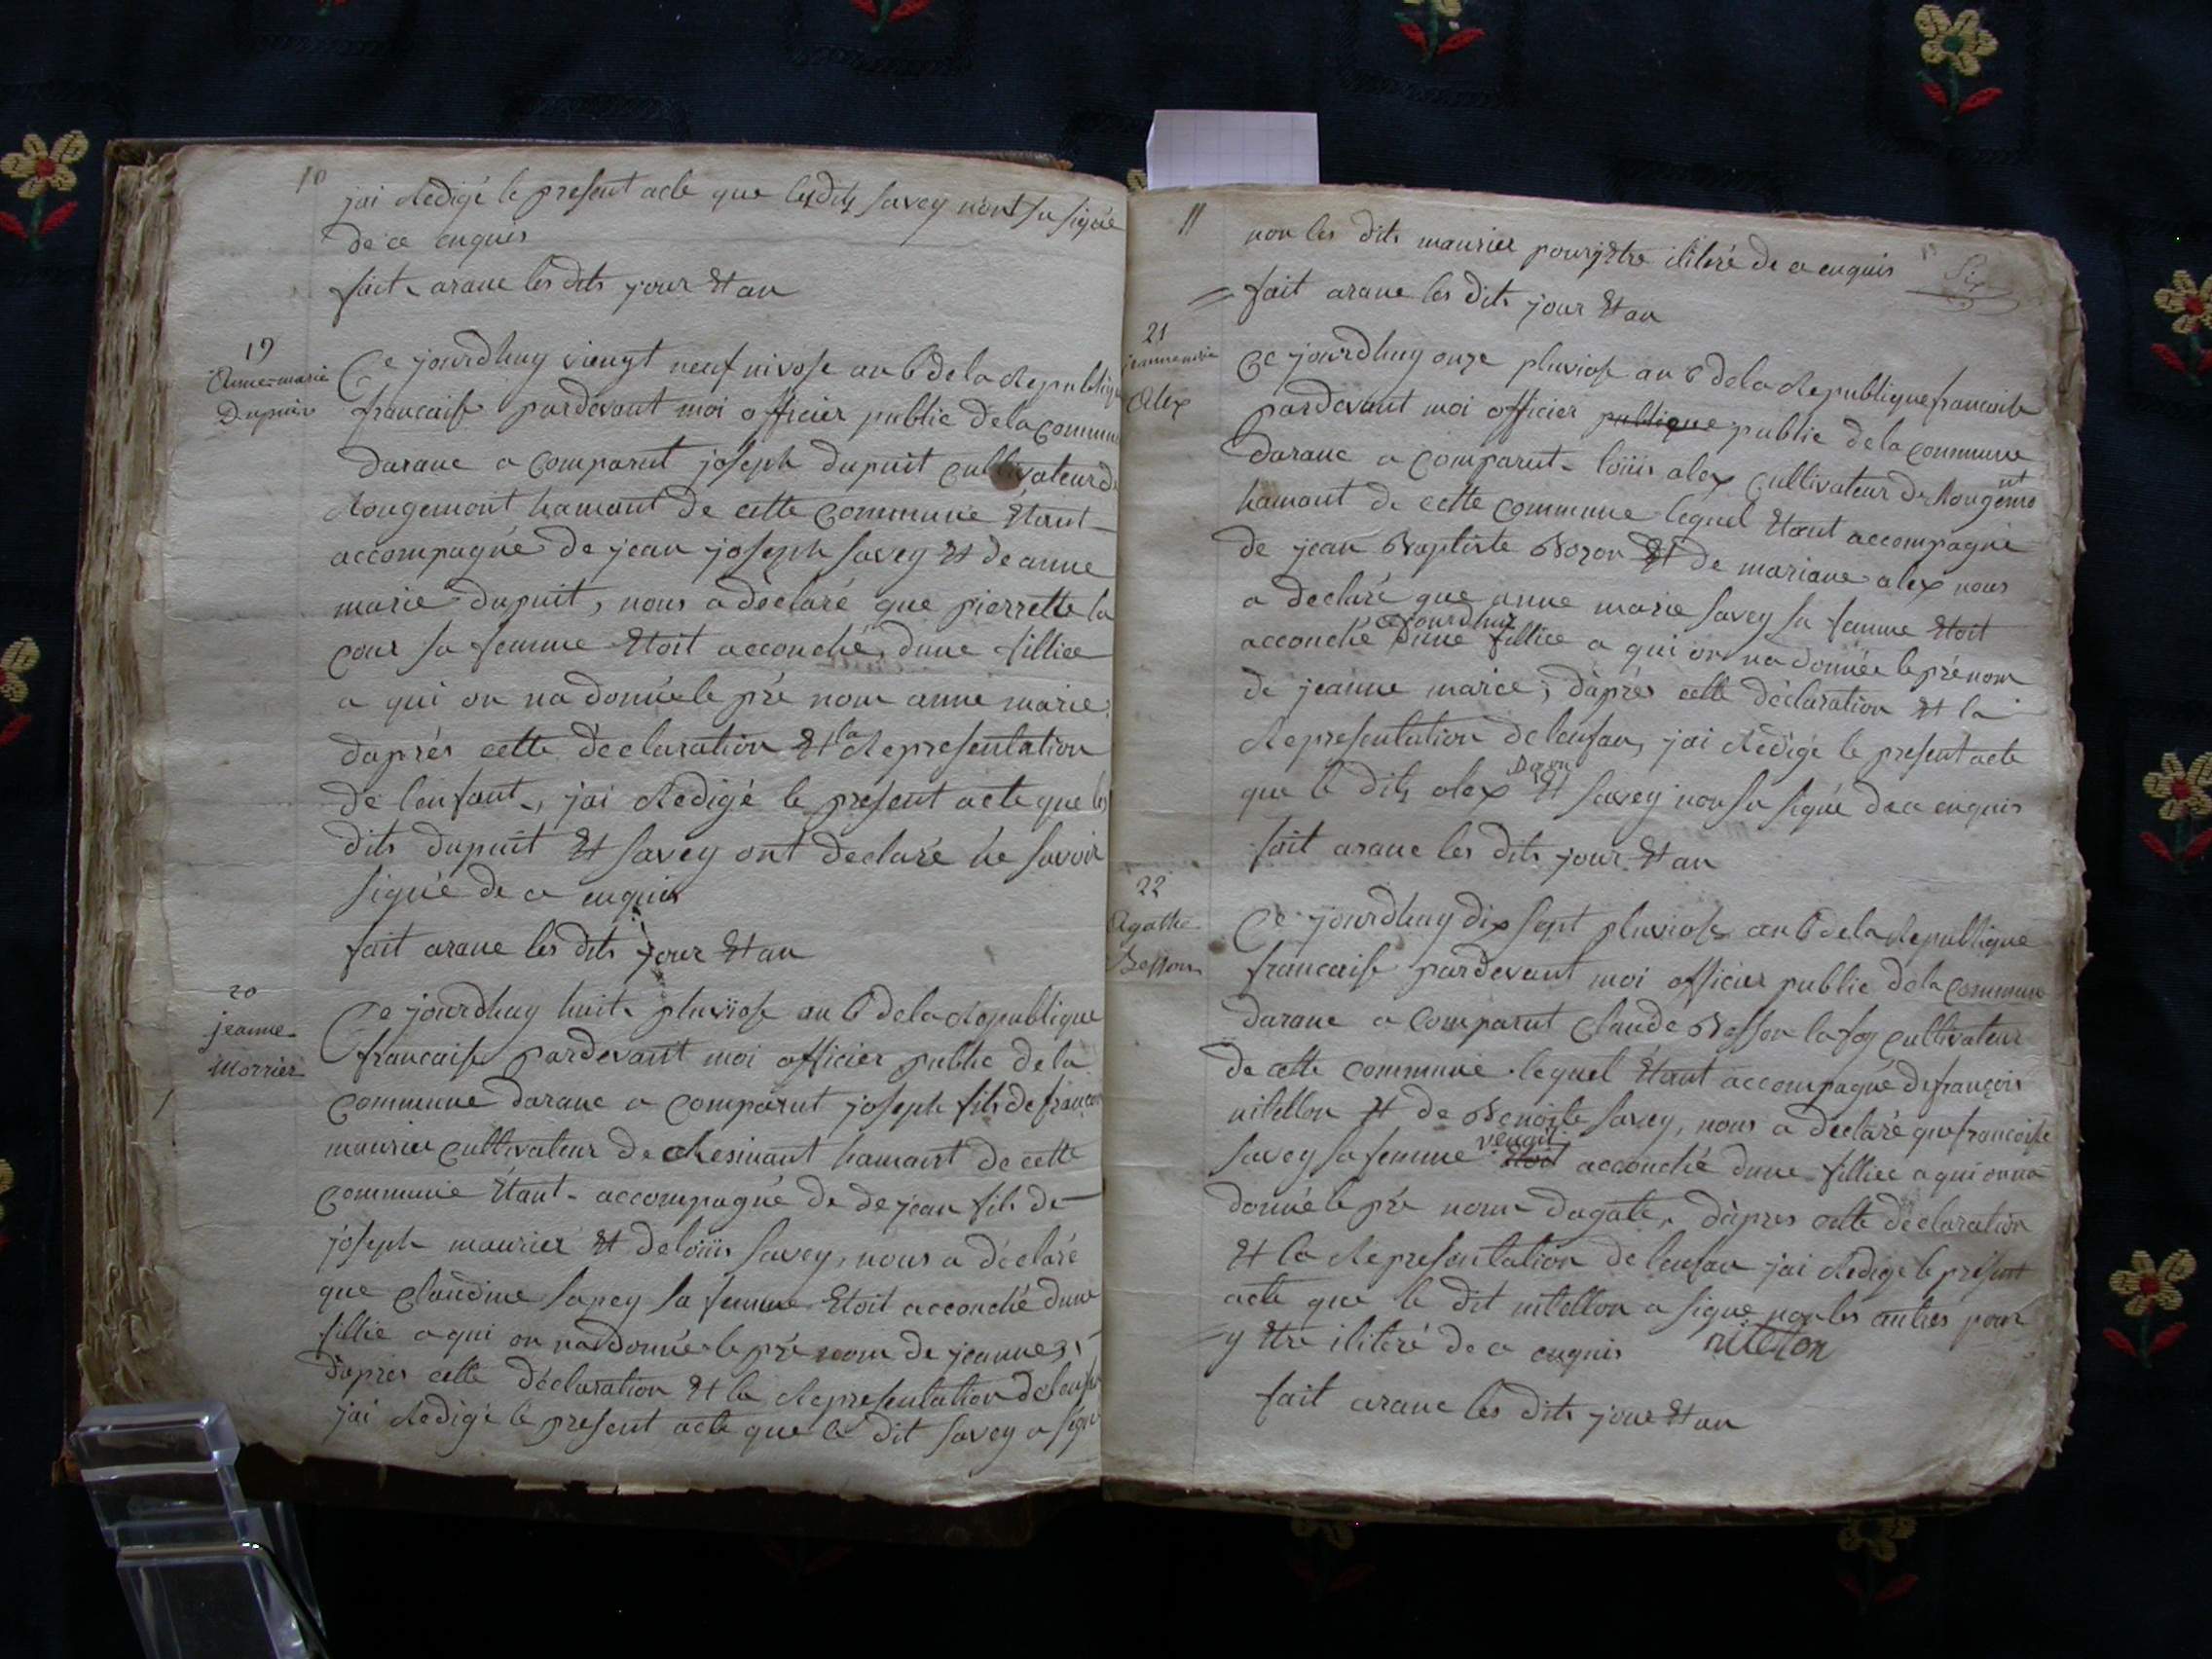 10
jai redigé le present acte que lesdits savey nont su signé
de ce enquis
fait arane les dits jour et an
19
Anne-marie
Dupuis
Ce jourdhuy vinngt neuf nivose an 6 de la Republique
francaise pardevant moi officier public de la commune
darane a comparut joseph dupuit cultivateur de
Rougemont hamant de cette commune étant
accompagné de jean joseph savey et de anne
marie dupuit, nous a déclaré que pierrette la
cour sa femme etoit accouché dune filliee
a qui on na donné le pré nom anne marie
daprés cette declaration et la Representation
de lenfant, jai Redigé le present acte que les
dits dupuit et savey ont declaré ne savoir
signé de ce enquis
fait arane les dits jour et an
20
jeanne
morrier
Ce jourdhuy huit pluviose an 6 de la Republique
francaise pardevant moi officier public de la
commune darane a comparut joseph fils de francois
maurier cultivateur de Resinant hamant de cette
commune étant accompagné de de jean fils de
joseph maurier et de loüis savey, nous a déclaré
que claudine savey sa femme etoit accouché dune
fillie a qui on na donné le pré nom de jeanne,
daprés cette déclaration et la Representation de lenfan
jai Redigé le present acte que le dit savey a signé
11
non les dits maurier pour y etre ilitéré de ce enquis
fait arane les dits jour et an
21
jeanne marie
Alex
Ce jourdhuy onze pluviose an 6 de la Republique francaise
pardevant moi officier publique public de la commune
darane a comparut loüis alex cultivateur de Rougemont
hamant de cette commune lequel étant accompagné
de jean Baptiste Bozon et de mariane alex nous
a declaré que anne marie savey sa femme etoit
accouché cejourdhuy dune filliee a qui on na donnée le prénom
de jeanne marie, daprés cette déclaration et la
Representation de lenfan, jai Redigé le present acte
que le dits alex Bozon et savey non su signé de ce enquis
fait arane les dits jour et an
22
Agathe
Besson
Ce jourdhuy dix sept pluviose an 6 de la Republique
francaise pardevant moi officier public de la commune
darane a comparut claude Besson lafoy cultivateur
de cette commune lequel étant accompagné de françois
nitellon et de Benoite savey, nous a declaré que francoise
savey sa femme etoit venoit accouché dune filliee a qui on na
donné le pré nom dagate, daprés cette déclaration
et la Representation de lenfan jai Redigé le présent
acte que le dit nitellon a signé non les autres pour
y etre ilitéré de ce enquis nitellon
fait arane les dits jour et an